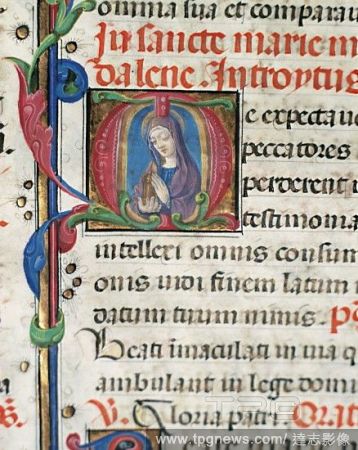 omnia sua et comparau
In sancte marie m
dalene. Introytus
M e expectaue
peccatores
perderent
testimonia
intellexi omnis consum
onis uidi finem latum
datum tuum nimis. Ps
Beati immaculati in uia q
ambulant in lege domi
V. Gloria patri. Orat
www.tpgnews.com/達志影像